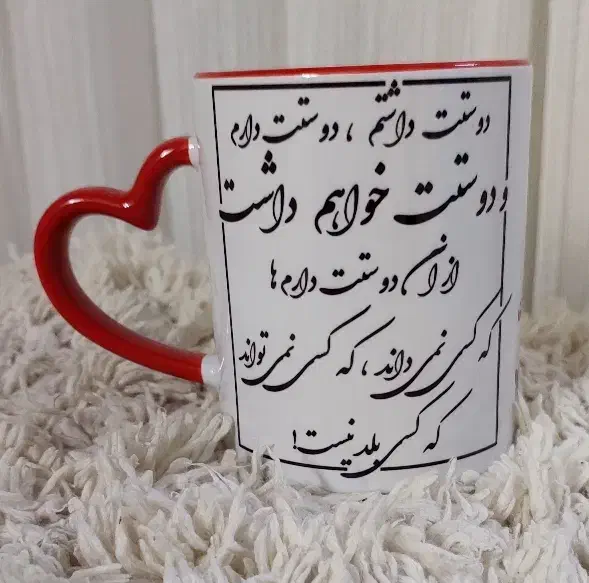 دوستت داشتم ، دوستت دارم
و دوستت خواهم داشت
از آن دوستت دارم ها
که کسی نمی داند ، که کسی نمی تواند
که کسی بلد نیست!